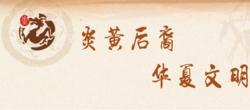 炎黄后裔
华夏文明